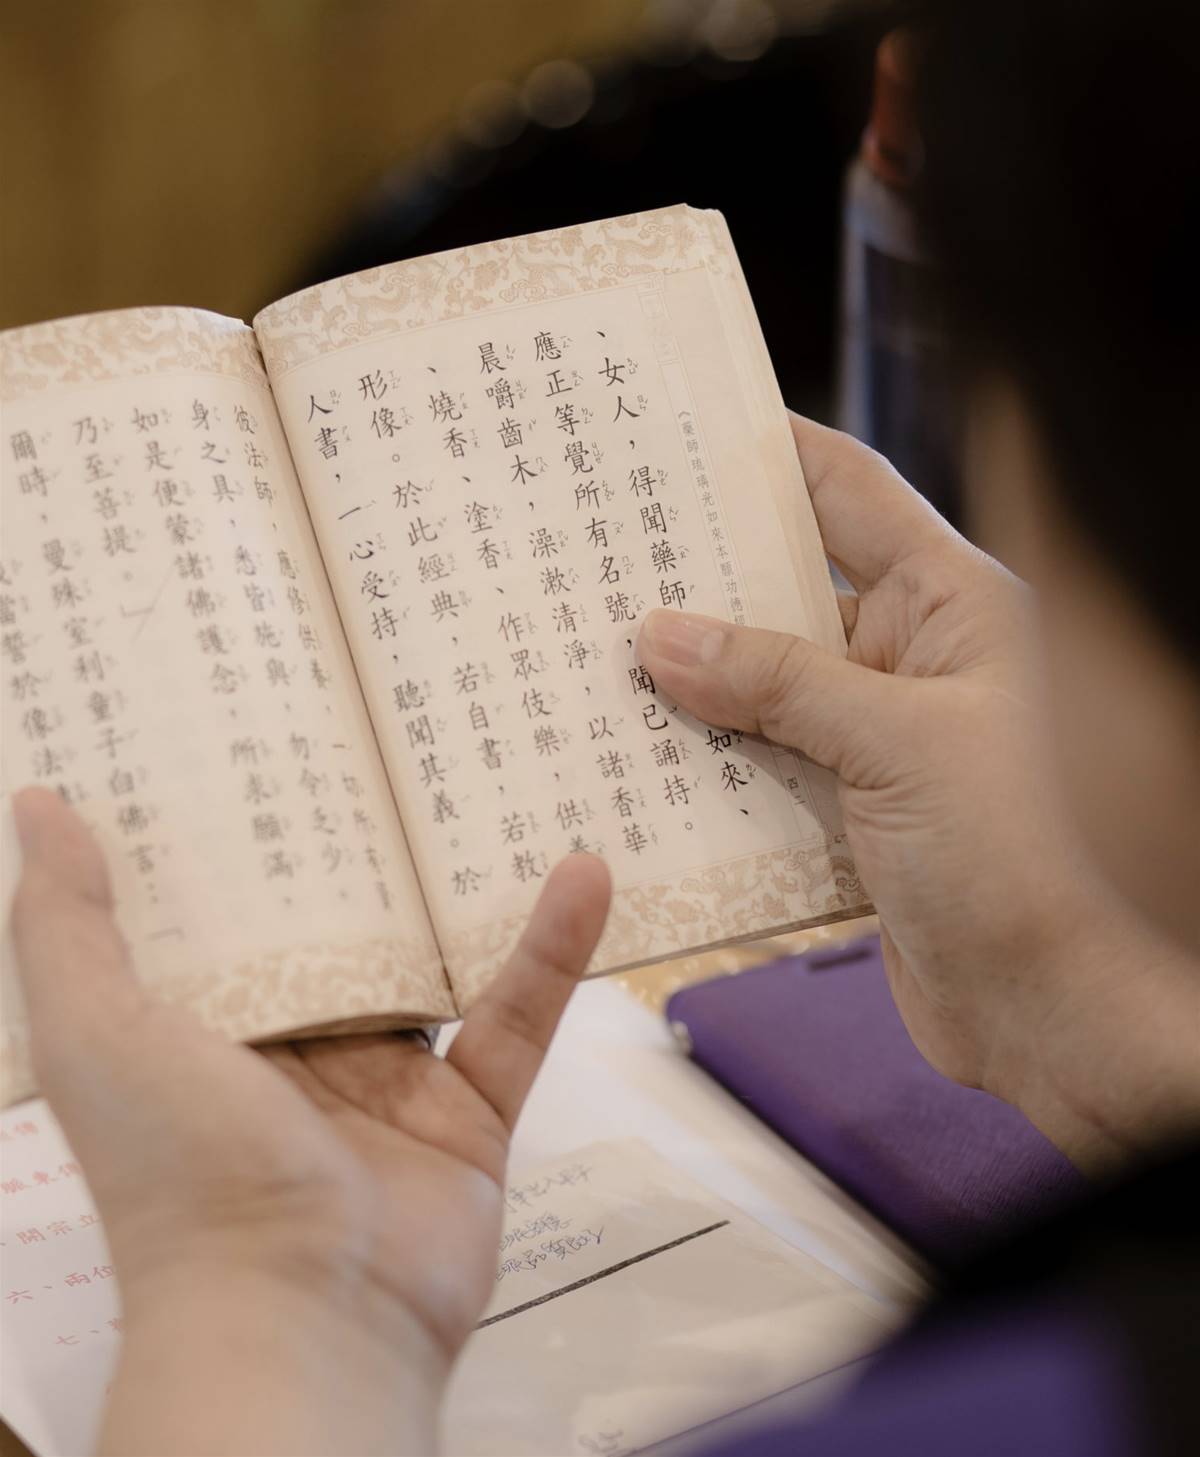 《藥師琉璃光如來本願功德經
四二
、女人，得聞藥師如來、
應正等覺所有名號，聞已誦持。
晨嚼齒木，澡漱清淨，以諸香華
、燒香、塗香、作眾伎樂，供養
形像。於此經典，若自書，若教
人書，一心受持，聽聞其義。於
彼法師，應修供養，一切所有
身之具，悉皆施與，勿令乏少。
如是便蒙諸佛護念，所求願滿，
乃至菩提。」
爾時，曼殊室利童子白佛言：「
當誓於像法
東傳
、開宗立
六、兩位
七、